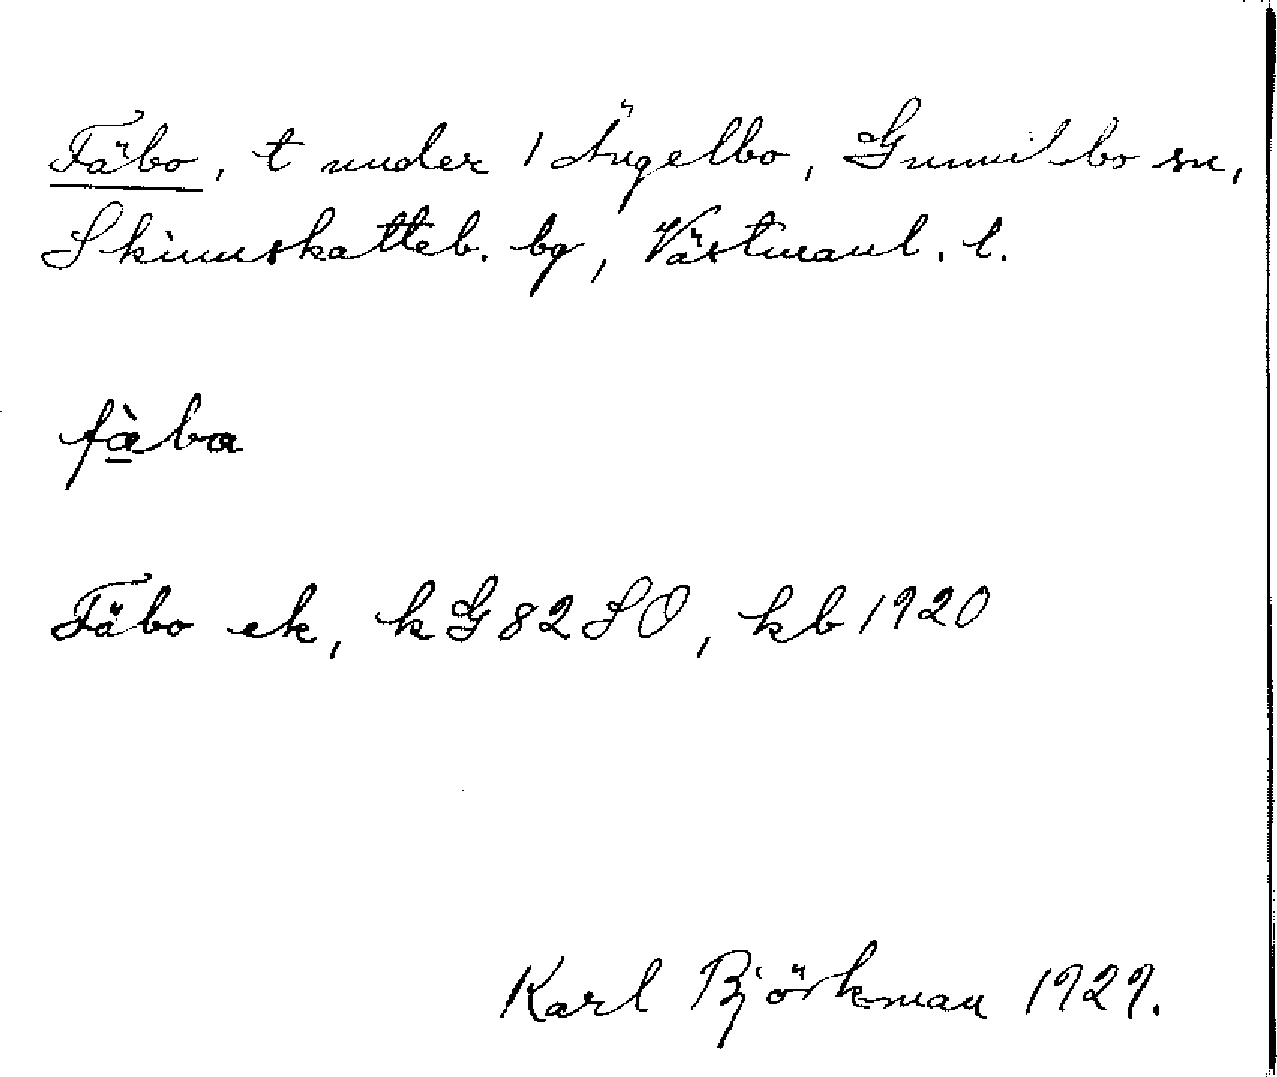 Fäbo, t under 1 Ängelbo, Gunnilbo sn,
Skinnskatteb. bg, Västmanl. l.
fàba
Fäbo ek, kG82SO, kb 1920
Karl Björkman 1929.